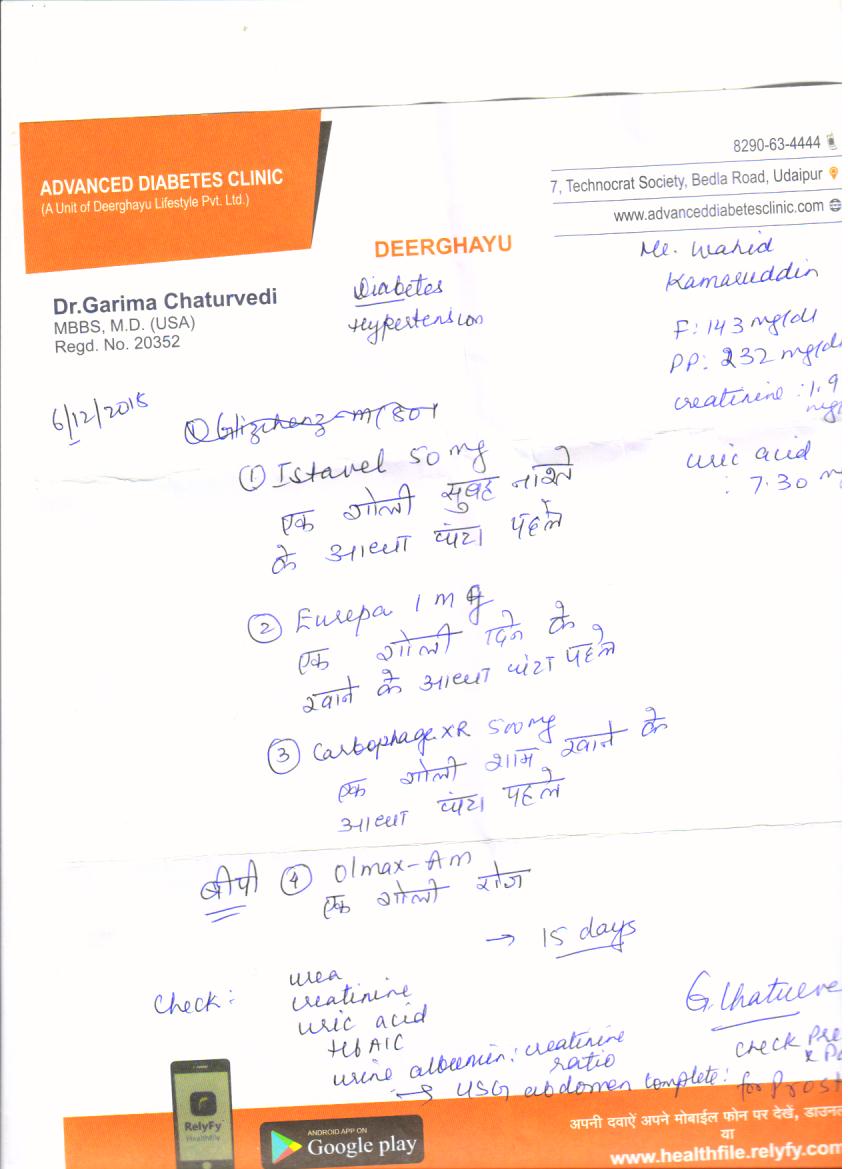 ADVANCED DIABETES CLINIC
(A Unit of Deerghayu Lifestyle Pvt. Ltd.)
8290-63-4444
7, Technocrat Society, Bedla Road, Udaipur
www.advanceddiabetesclinic.com
DEERGHAYU
Dr.Garima Chaturvedi
MBBS, M.D. (USA)
Regd. No. 20352
Diabetes
Hypertension
Mr. Wahid
Kamaruddin
F: 143 mg/dl
PP: 232 mg/dl
creatinine : 1.9
mg/
uric acid
: 7.30 m
6/12/2015
① Istavel 50 mg
एक गोली सुबह नाश्ते
के आधा घंटा पहले
② Eurepa 1 mg
एक गोली दिन के
खाने के आधा घंटा पहले
③ Carbophage XR 500 mg
एक गोली शाम खाने के
आधा घंटा पहले
बीपी ④ Olmax-Am
एक गोली रोज
→ 15 days
Check: urea
creatinine
uric acid
HbA1C
urine albumin: creatinine
ratio
→ USG abdomen complete:
check Pre
for Prost
RelyFy
Healthfile
ANDROID APP ON
Google play
अपनी दवाऐं अपने मोबाईल फोन पर देखें, डाउनल
या
www.healthfile.relyfy.com